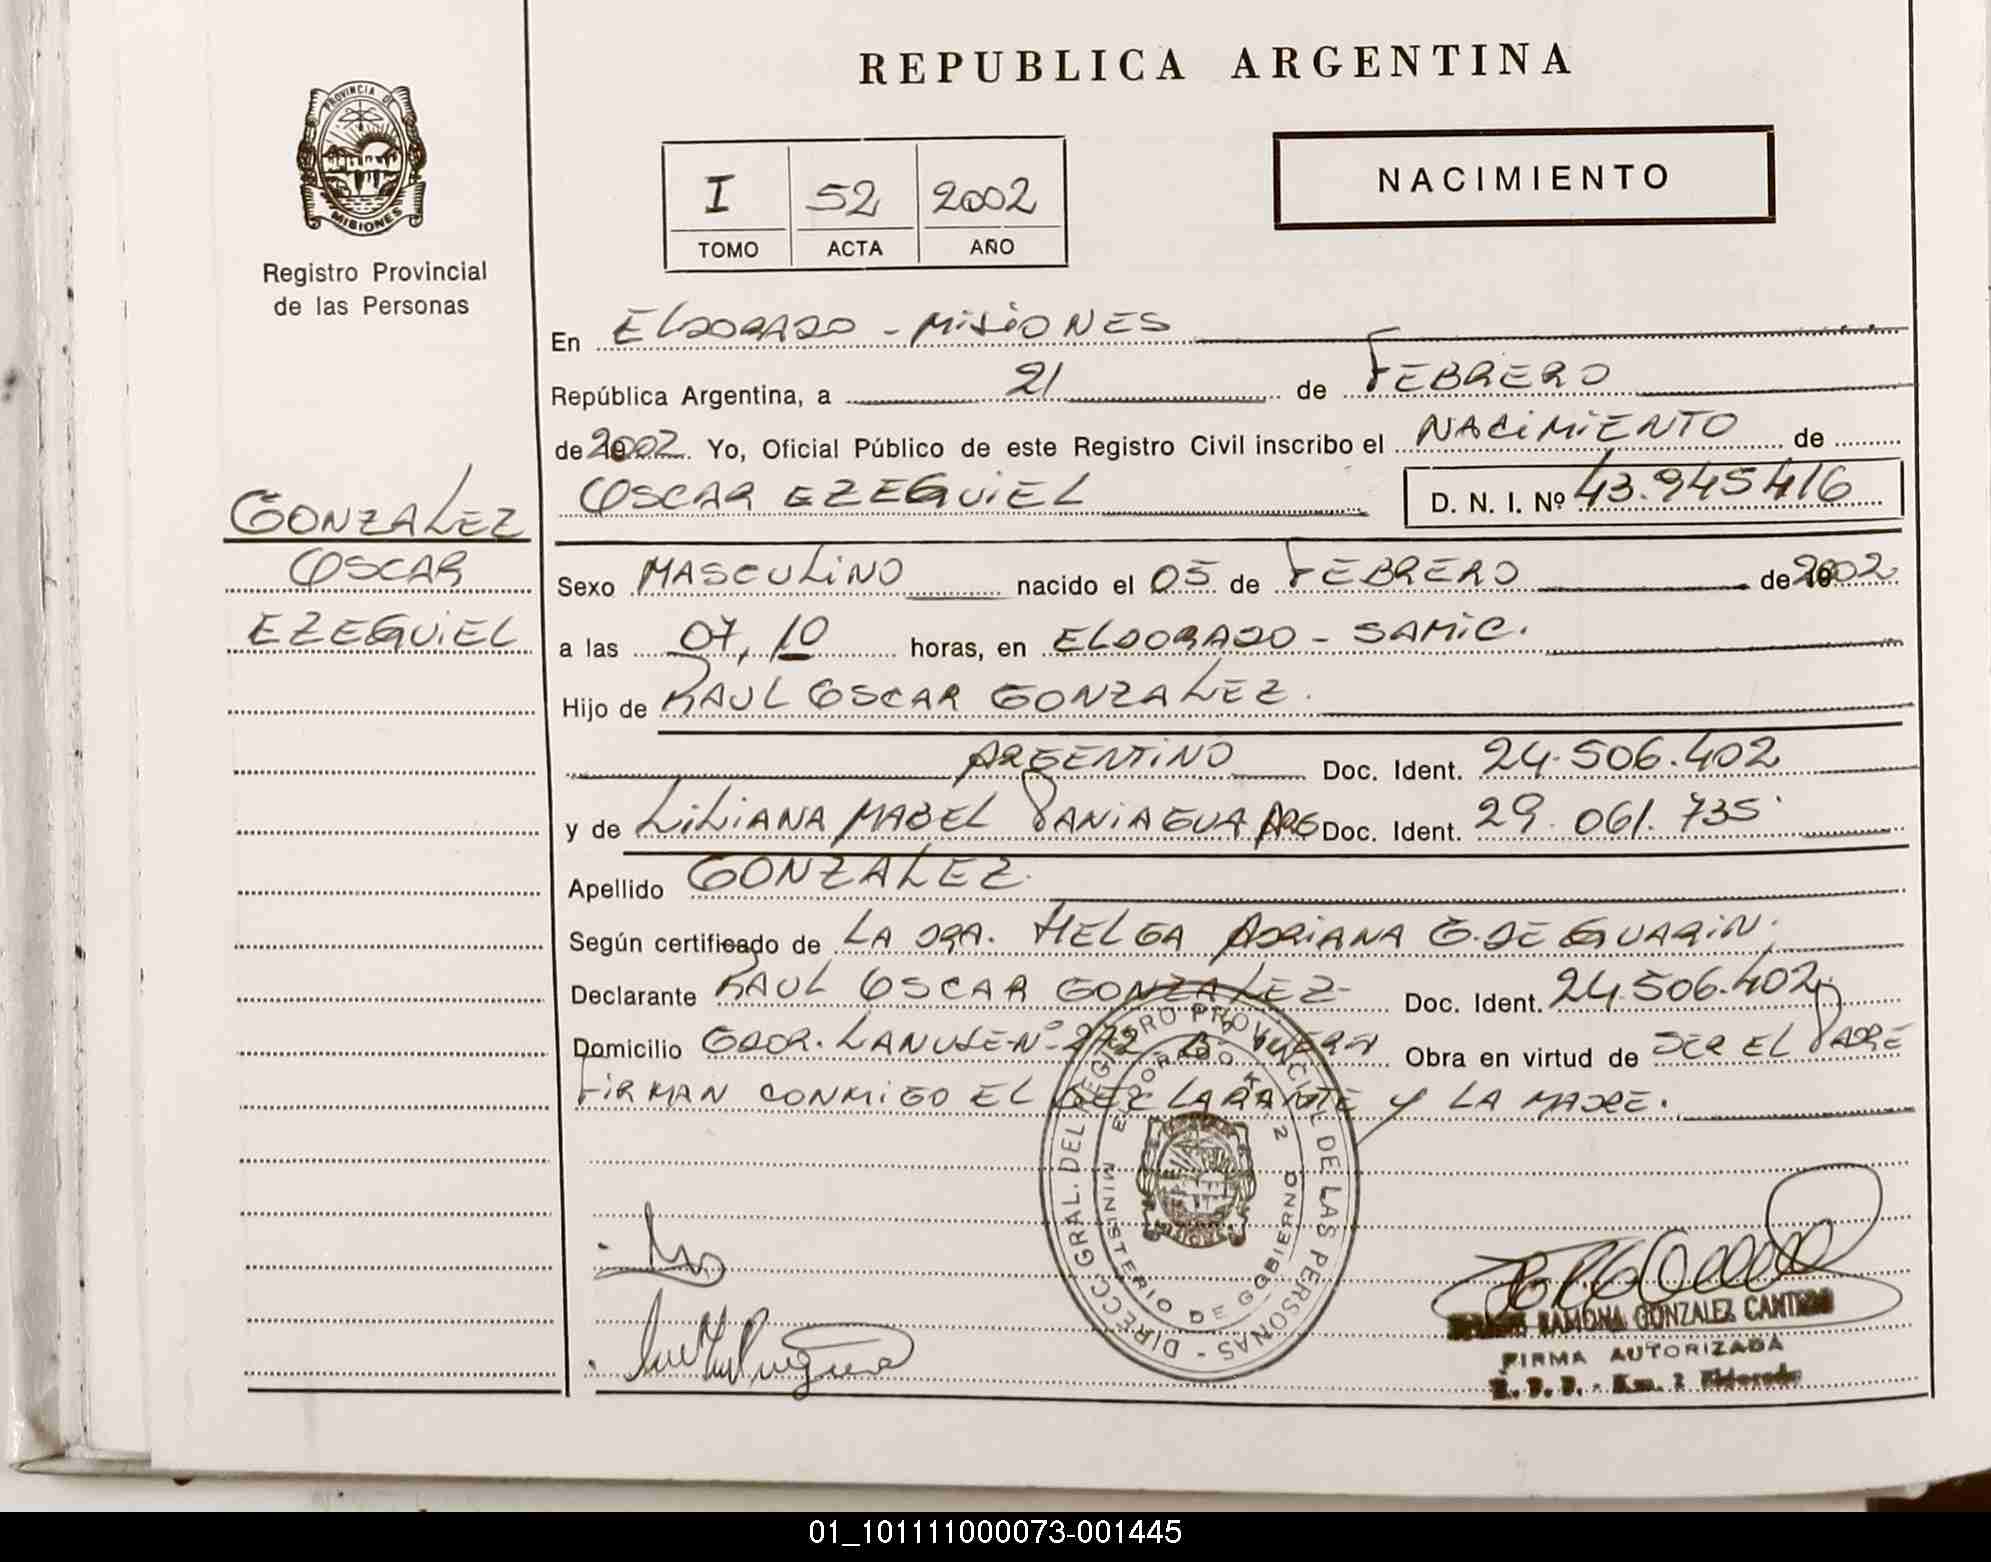 REPUBLICA ARGENTINA
PROVINCIA DE
MISIONES
Registro Provincial
de las Personas
I 52 2002
TOMO ACTA AÑO
NACIMIENTO
En ELDORADO - MISIONES
República Argentina, a 21 de FEBRERO
de 2002 Yo, Oficial Público de este Registro Civil inscribo el NACIMIENTO de
OSCAR EZEQUIEL D. N. I. Nº 43.945416
GONZALEZ
OSCAR
EZEQUIEL
Sexo MASCULINO nacido el 05 de FEBRERO de 2002
a las 07,10 horas, en ELDORADO - SAMIC.
Hijo de RAUL OSCAR GONZALEZ.
ARGENTINO Doc. Ident. 24.506.402
y de LILIANA MABEL PANIAGUA ARG Doc. Ident. 29.061.735
Apellido GONZALEZ
Según certificado de LA DRA. HELGA ADRIANA G. DE GUARIN,
Declarante RAUL OSCAR GONZALEZ Doc. Ident. 24.506.402
Domicilio GDOR. LANUSE Nº 272 Obra en virtud de SER EL PADRE
FIRMAN CONMIGO EL DECLARANTE Y LA MADRE.
DIRECC. GRAL. DEL REGISTRO PROVINCIAL DE LAS PERSONAS -
ELDORADO K. 2
MINISTERIO DE GOBIERNO
RAMONA GONZALEZ
FIRMA AUTORIZADA
Km. 2 Eldorado
01_101111000073-001445